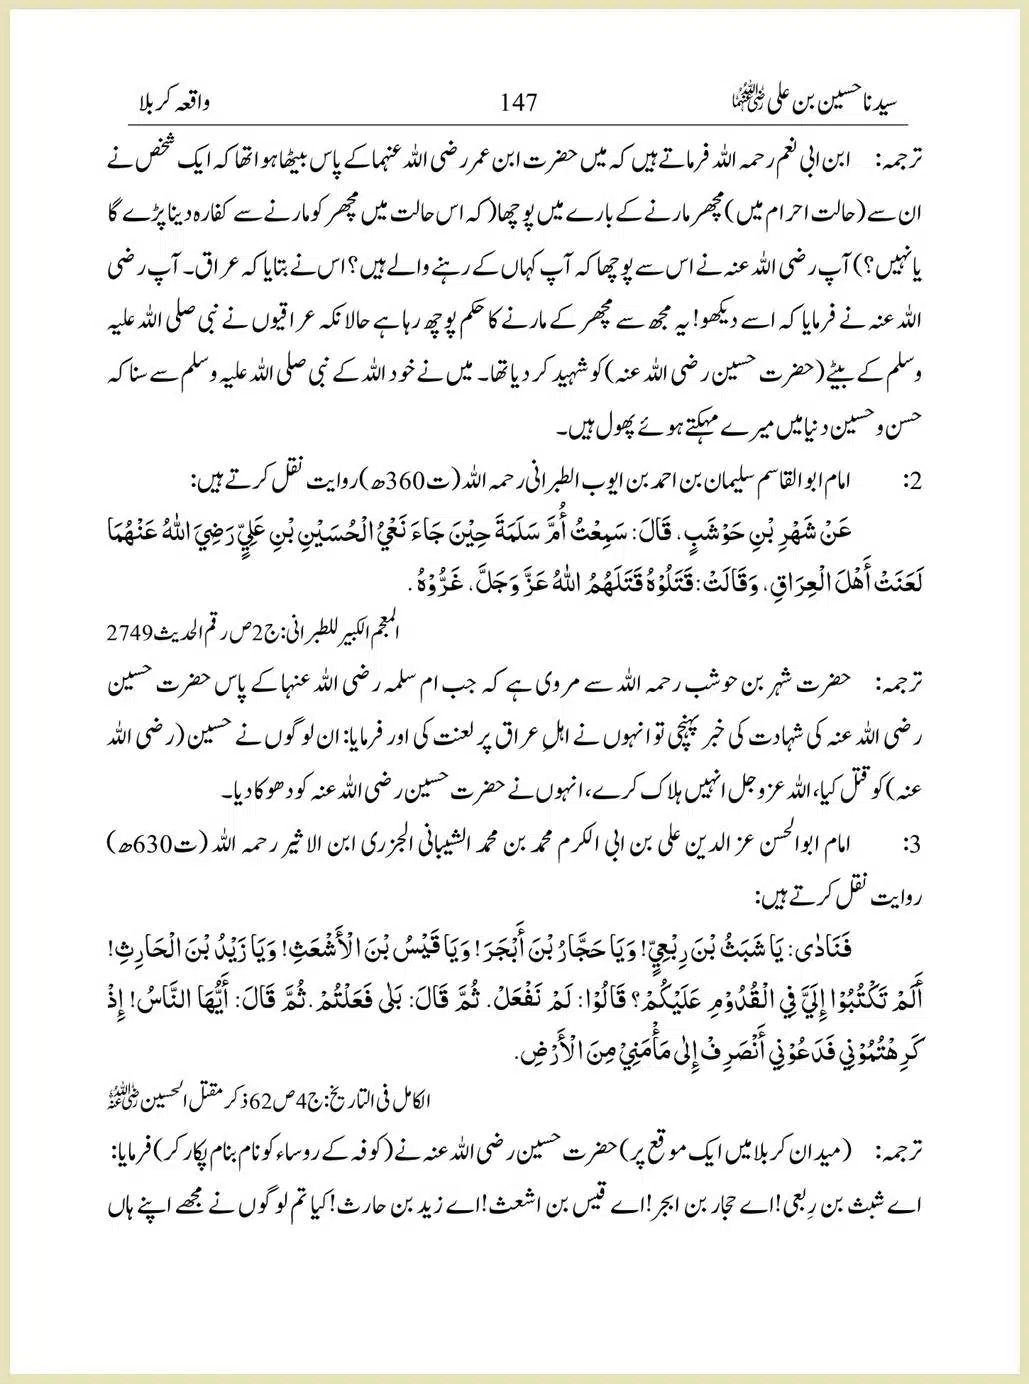 سیدنا حسین بن علی رضی اللہ عنہما 147 واقعہ کربلا
ترجمہ: ابن ابی نعم رحمہ اللہ فرماتے ہیں کہ میں حضرت ابن عمر رضی اللہ عنہما کے پاس بیٹھا ہوا تھا کہ ایک شخص نے
ان سے (حالت احرام میں) مچھر مارنے کے بارے میں پوچھا( کہ اس حالت میں مچھر کو مارنے سے کفارہ دینا پڑے گا
یا نہیں؟) آپ رضی اللہ عنہ نے اس سے پوچھا کہ آپ کہاں کے رہنے والے ہیں؟ اس نے بتایا کہ عراق۔ آپ رضی
اللہ عنہ نے فرمایا کہ اسے دیکھو! یہ مجھ سے مچھر کے مارنے کا حکم پوچھ رہا ہے حالانکہ عراقیوں نے نبی صلی اللہ علیہ
وسلم کے بیٹے (حضرت حسین رضی اللہ عنہ) کو شہید کر دیا تھا۔ میں نے خود اللہ کے نبی صلی اللہ علیہ وسلم سے سنا کہ
حسن و حسین دنیا میں میرے مہکتے ہوئے پھول ہیں۔
2: امام ابو القاسم سلیمان بن احمد بن ایوب الطبرانی رحمہ اللہ (ت360ھ) روایت نقل کرتے ہیں:
عَنْ شَهْرِ بْنِ حَوْشَبٍ، قَالَ: سَمِعْتُ أُمَّ سَلَمَةَ حِيْنَ جَاءَ نَعْيُ الْحُسَيْنِ بْنِ عَلِيٍّ رَضِيَ اللهُ عَنْهُمَا
لَعَنَتْ أَهْلَ الْعِرَاقِ، وَقَالَتْ: قَتَلُوْهُ قَتَلَهُمُ اللهُ عَزَّ وَجَلَّ، غَرُّوْهُ.
المعجم الکبیر للطبرانی: ج2ص رقم الحدیث 2749
ترجمہ: حضرت شہر بن حوشب رحمہ اللہ سے مروی ہے کہ جب ام سلمہ رضی اللہ عنہا کے پاس حضرت حسین
رضی اللہ عنہ کی شہادت کی خبر پہنچی تو انہوں نے اہلِ عراق پر لعنت کی اور فرمایا: ان لوگوں نے حسین (رضی اللہ
عنہ) کو قتل کیا، اللہ عزوجل انہیں ہلاک کرے، انہوں نے حضرت حسین رضی اللہ عنہ کو دھوکا دیا۔
3: امام ابوالحسن عز الدین علی بن ابی الکرم محمد بن محمد الشیبانی الجزری ابن الاثیر رحمہ اللہ (ت630ھ)
روایت نقل کرتے ہیں:
فَنَادٰى: يَا شَبَثُ بْنَ رِبْعِيٍّ! وَيَا حَجَّارُ بْنَ أَبْجَرَ! وَيَا قَيْسُ بْنَ الْأَشْعَثِ! وَيَا زَيْدُ بْنَ الْحَارِثِ!
أَلَمْ تَكْتُبُوْا إِلَيَّ فِي الْقُدُوْمِ عَلَيْكُمْ؟ قَالُوْا: لَمْ نَفْعَلْ. ثُمَّ قَالَ: بَلٰى فَعَلْتُمْ. ثُمَّ قَالَ: أَيُّهَا النَّاسُ! إِذْ
كَرِهْتُمُوْنِي فَدَعُوْنِي أَنْصَرِفْ إِلٰى مَأْمَنِيْ مِنَ الْأَرْضِ.
الکامل فی التاریخ: ج4ص62 ذکر مقتل الحسین رضی اللہ عنہ
ترجمہ: (میدان کربلا میں ایک موقع پر) حضرت حسین رضی اللہ عنہ نے (کوفہ کے روساء کو نام بنام پکار کر) فرمایا:
اے شبث بن رِبعی! اے حجار بن ابجر! اے قیس بن اشعث! اے زید بن حارث! کیا تم لوگوں نے مجھے اپنے ہاں